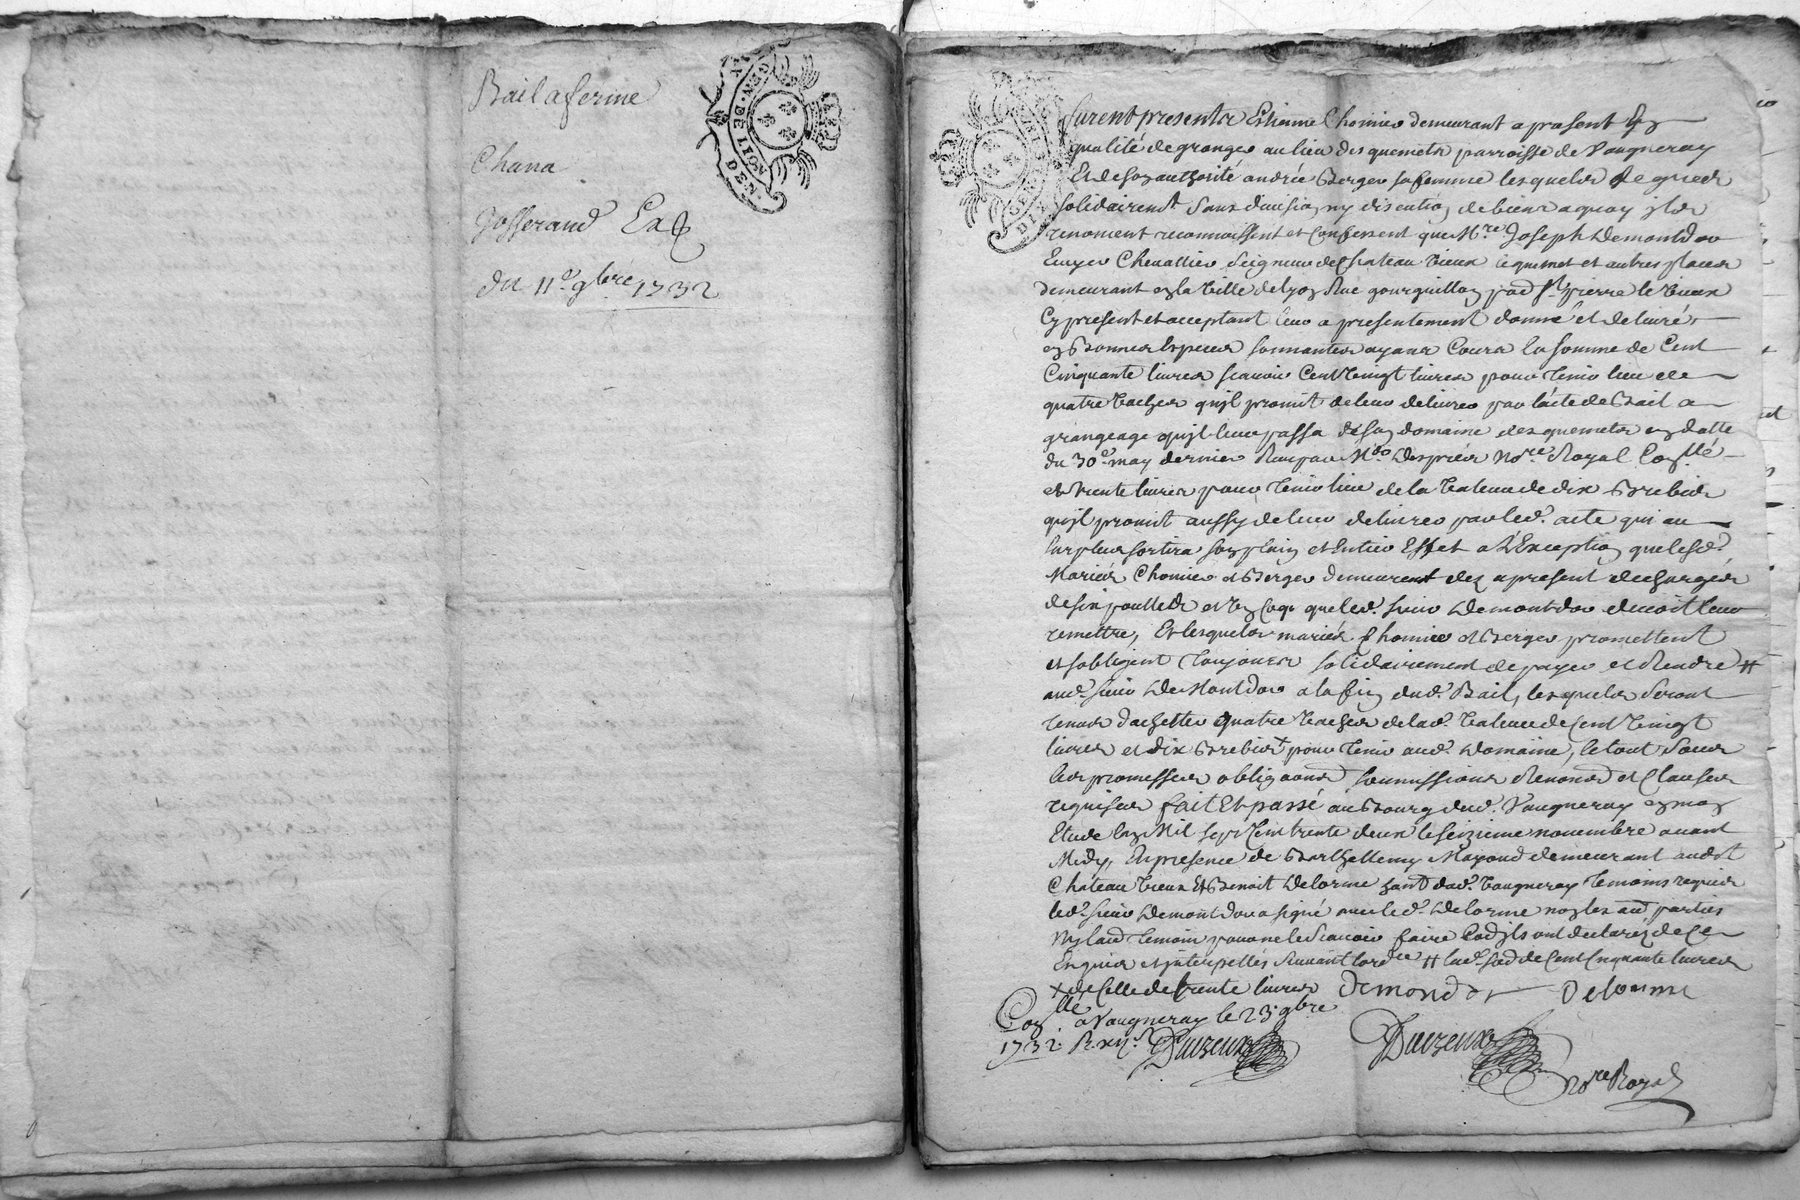 Bail a ferme
Chana
Josserand Exp
du 11e. 9bre 1732
GEN. DE LION
DEN.
furent presents Estienne Chomier demeurant a present en
qualité de granger au lieu des quemets parroisse de Vaugneray
Et de son authorité andrée Berger sa femme lesquels de gred
solidairemt. sans division ny discution de biens a quoy ils
renoncent reconnoissent et confessent que Mre. Joseph Demontdor
Ecuyer Chevallier Seigneur de Chateau vieux le quemet et autres places
demeurant en la ville de Lyon Rue gourguillon parr. St. pierre le vieux
Cy present et acceptant leur a presentement donné et delivré
en Bonnes Especes sonnantes ayans Cours la somme de Cent
Cinquante livres scavoir Cent vingt livres pour tenir lieu de
quatre vaches qu'jl promit de leur delivrer par lacte de Bail a
grangeage qujl leur passa de son domaine des quemets en datte
du 30e. may dernier Receu par Me. Després Nore. Royal
et trente livres pour tenir lieu de la valeur de dix Brebis
qujl promit aussy de leur delivrer par led. acte qui au
surplus sortira son plain et entier Effet a L'Exception que lesd.
Mariés Chomier et Berger demeurent dez a present dechargés
de six poulles et un Coqs que led. sieur Demontdor devoit leur
remettre, Et lesquels mariés Chomier et Berger promettent
et sobligent toujours solidairement de payer et Rendre #
aud. sieur De Montdor a la fin dud. Bail, lesquels seront
tenus dachetter quatre vaches de lad. valeur de Cent vingt
livres et dix Brebis x pour tenir aud. Domaine, le tout sous
les promesses obligaons soumissions Renonons et Clauses
requises fait Et passé au Bourg dud. Vaugneray en mon
Etude Lan Mil sept Cent trente deux le seizieme novembre avant
Midy, En presence de Barthellemy Mazoud demeurant audt.
Chateau vieux Et Benoit Delorme dud. Vaugneray temoins requis
led. sieur Demontdor a signé avec led. Delorme non les autres parties
Ny laud. temoin pour ne le scavoir faire ils ont declarés de ce
Enquis et jnterpellés suivant lordce # lad. somme de Cent Cinquante livres
x de Celle de trente livres
Demondor Delorme
a Vaugneray le 23e. 9bre
1732.
Duizeux
Duizeux
Nore Royal